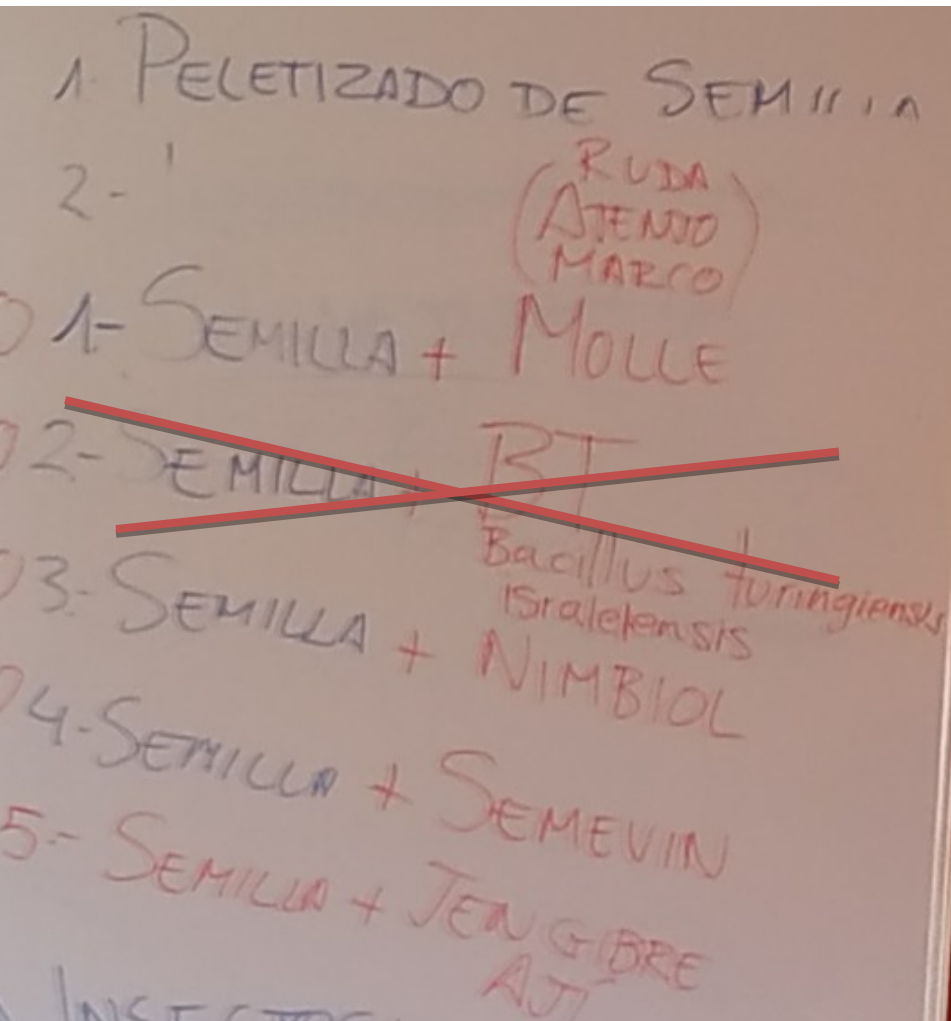 1. PELETIZADO DE SEMILLA
2-
(RUDA
AJENJO
MARCO)
1- SEMILLA + MOLLE
2- SEMILLA + BT
Bacillus turingiensis
isralelensis
3- SEMILLA + NIMBIOL
4- SEMILLA + SEMEVIN
5- SEMILLA + JENGIBRE
AJI